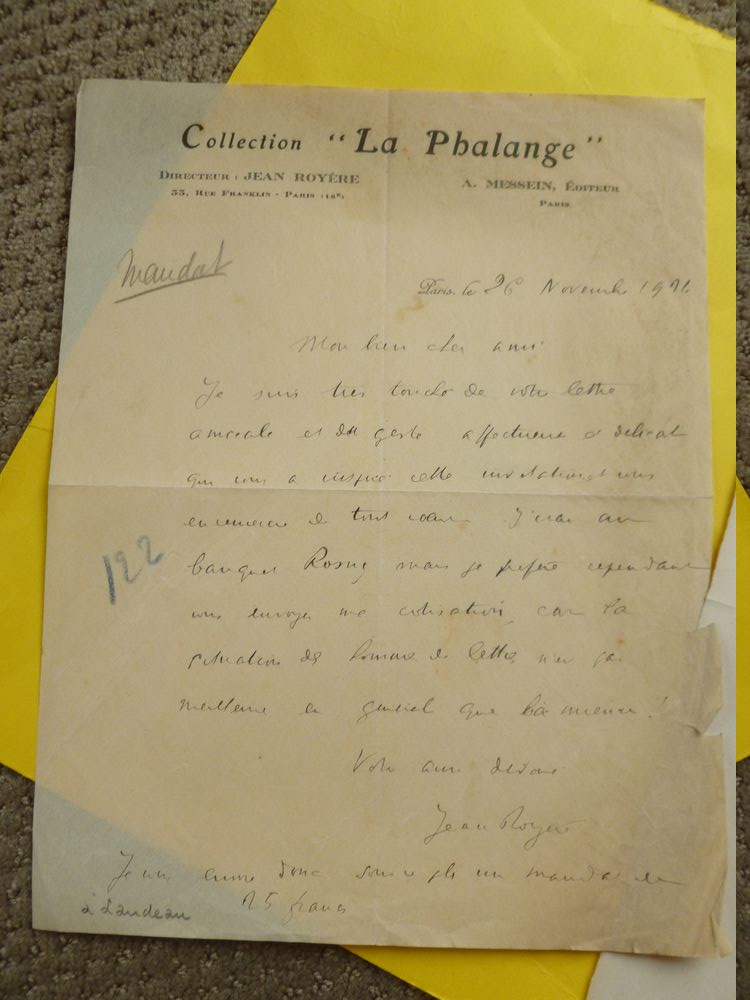 Collection "La Phalange"
DIRECTEUR : JEAN ROYÈRE
A. MESSEIN, ÉDITEUR
33, RUE FRANKLIN - PARIS (16e)
PARIS
Mandat
Paris, le 26 Novembre 19
Mon bien cher ami
Je suis très touché de votre lettre
amicale et du geste affectueux et délicat
qui vous a inspiré cette invitation et vous
en remercie de tout coeur. J'irai au
banquet Rosny mais je préfère cependant
vous envoyer ma cotisation, car la
situation des hommes de lettres n'est pas
meilleure en général que la mienne !
122
Votre ami dévoué
Jean Royère
Je vous envoie donc sous ce pli un mandat de
25 francs
à Landeau